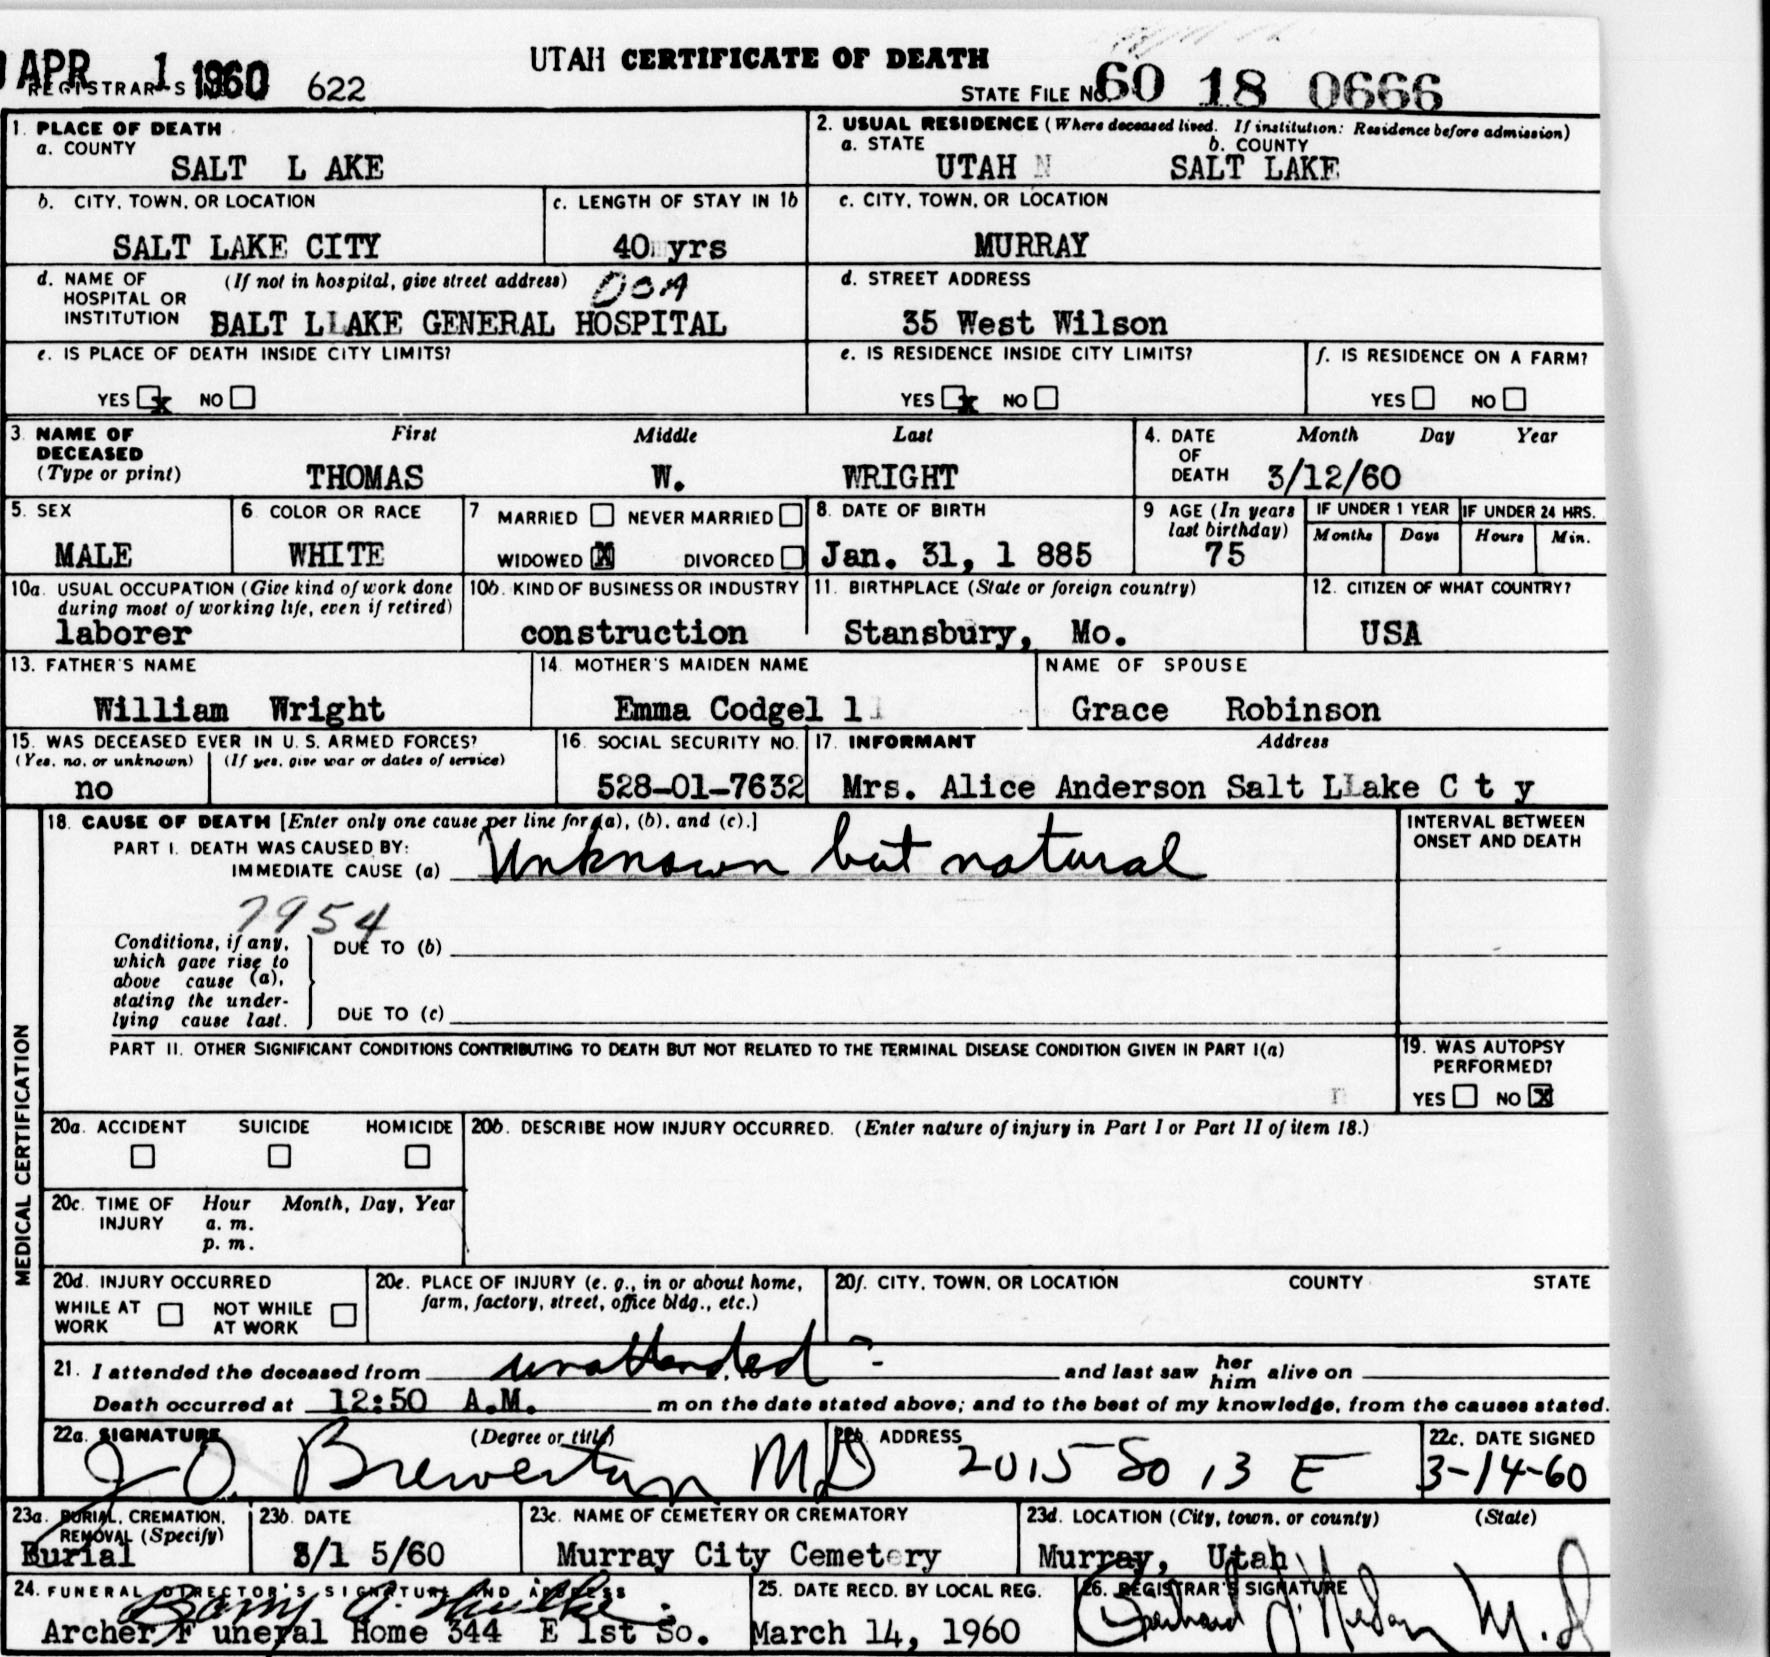 APR 1 1960
UTAH CERTIFICATE OF DEATH
REGISTRAR'S 622
STATE FILE NO. 60 18 0666
1. PLACE OF DEATH
a. COUNTY
SALT L AKE
2. USUAL RESIDENCE (Where deceased lived. If institution: Residence before admission)
a. STATE b. COUNTY
UTAH N SALT LAKE
b. CITY, TOWN, OR LOCATION
SALT LAKE CITY
c. LENGTH OF STAY IN 1b
40 yrs
c. CITY, TOWN, OR LOCATION
MURRAY
d. NAME OF HOSPITAL OR INSTITUTION (If not in hospital, give street address) DOA
SALT LLAKE GENERAL HOSPITAL
d. STREET ADDRESS
35 West Wilson
e. IS PLACE OF DEATH INSIDE CITY LIMITS?
YES x NO
e. IS RESIDENCE INSIDE CITY LIMITS?
YES x NO
f. IS RESIDENCE ON A FARM?
YES NO
3. NAME OF DECEASED (Type or print)
First Middle Last
THOMAS W. WRIGHT
4. DATE OF DEATH Month Day Year
3/12/60
5. SEX
MALE
6. COLOR OR RACE
WHITE
7 MARRIED NEVER MARRIED
WIDOWED X DIVORCED
8. DATE OF BIRTH
Jan. 31, 1 885
9 AGE (In years last birthday)
75
IF UNDER 1 YEAR
Months Days
IF UNDER 24 HRS.
Hours Min.
10a. USUAL OCCUPATION (Give kind of work done during most of working life, even if retired)
laborer
10b. KIND OF BUSINESS OR INDUSTRY
construction
11. BIRTHPLACE (State or foreign country)
Stansbury, Mo.
12. CITIZEN OF WHAT COUNTRY?
USA
13. FATHER'S NAME
William Wright
14. MOTHER'S MAIDEN NAME
Emma Codgel l
NAME OF SPOUSE
Grace Robinson
15. WAS DECEASED EVER IN U.S. ARMED FORCES?
(Yes, no, or unknown) (If yes, give war or dates of service)
no
16. SOCIAL SECURITY NO.
528-01-7632
17. INFORMANT Address
Mrs. Alice Anderson Salt LLake C t y
MEDICAL CERTIFICATION
18. CAUSE OF DEATH [Enter only one cause per line for (a), (b), and (c).]
PART I. DEATH WAS CAUSED BY:
IMMEDIATE CAUSE (a) Unknown but natural
INTERVAL BETWEEN ONSET AND DEATH
7954
Conditions, if any, which gave rise to above cause (a), stating the underlying cause last.
DUE TO (b)
DUE TO (c)
PART II. OTHER SIGNIFICANT CONDITIONS CONTRIBUTING TO DEATH BUT NOT RELATED TO THE TERMINAL DISEASE CONDITION GIVEN IN PART I(a)
19. WAS AUTOPSY PERFORMED?
YES NO X
20a. ACCIDENT SUICIDE HOMICIDE
20b. DESCRIBE HOW INJURY OCCURRED. (Enter nature of injury in Part I or Part II of item 18.)
20c. TIME OF INJURY Hour Month, Day, Year
a. m.
p. m.
20d. INJURY OCCURRED
WHILE AT WORK NOT WHILE AT WORK
20e. PLACE OF INJURY (e. g., in or about home, farm, factory, street, office bldg., etc.)
20f. CITY, TOWN, OR LOCATION COUNTY STATE
21. I attended the deceased from unattended - and last saw her him alive on
Death occurred at 12:50 A.M. m on the date stated above; and to the best of my knowledge, from the causes stated.
22a. SIGNATURE (Degree or title)
J O. Brewerton MD
22b. ADDRESS
2015 So 13 E
22c. DATE SIGNED
3-14-60
23a. BURIAL, CREMATION, REMOVAL (Specify)
Burial
23b. DATE
3/1 5/60
23c. NAME OF CEMETERY OR CREMATORY
Murray City Cemetery
23d. LOCATION (City, town, or county) (State)
Murray, Utah
24. FUNERAL DIRECTOR'S SIGNATURE AND ADDRESS
Archer F uneral Home 344 E 1st So.
25. DATE RECD. BY LOCAL REG.
March 14, 1960
26. REGISTRAR'S SIGNATURE
M.D